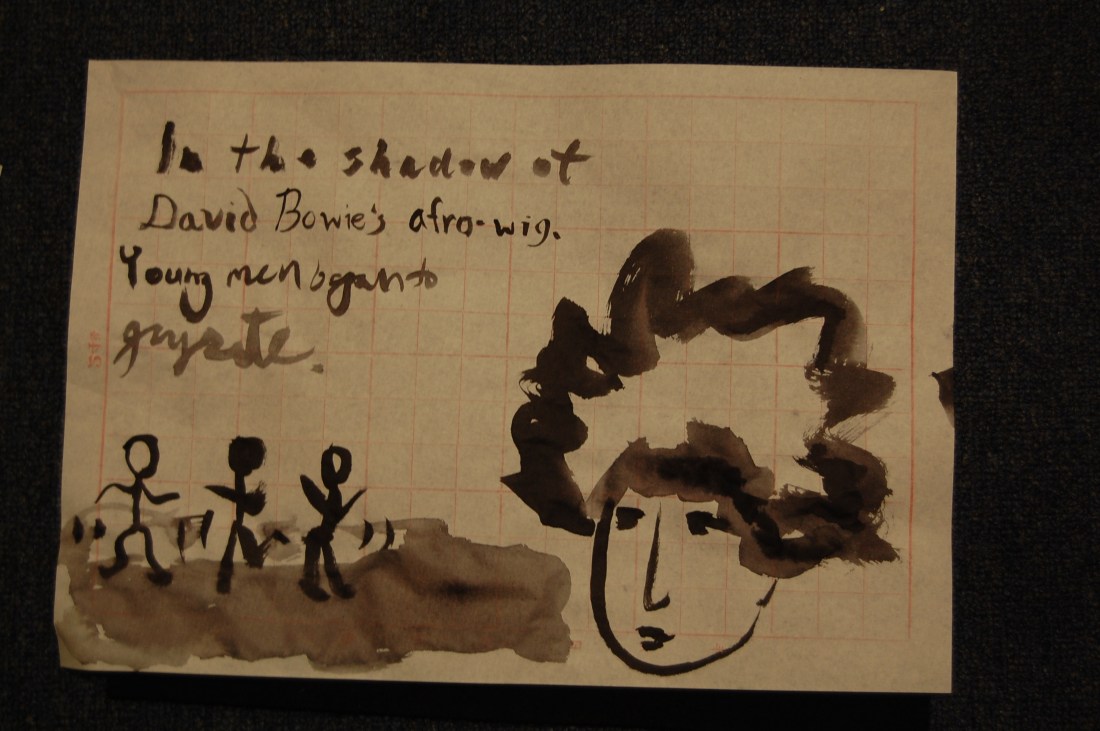 In the shadow of
David Bowie's afro-wig.
Young men began to
gyrate.